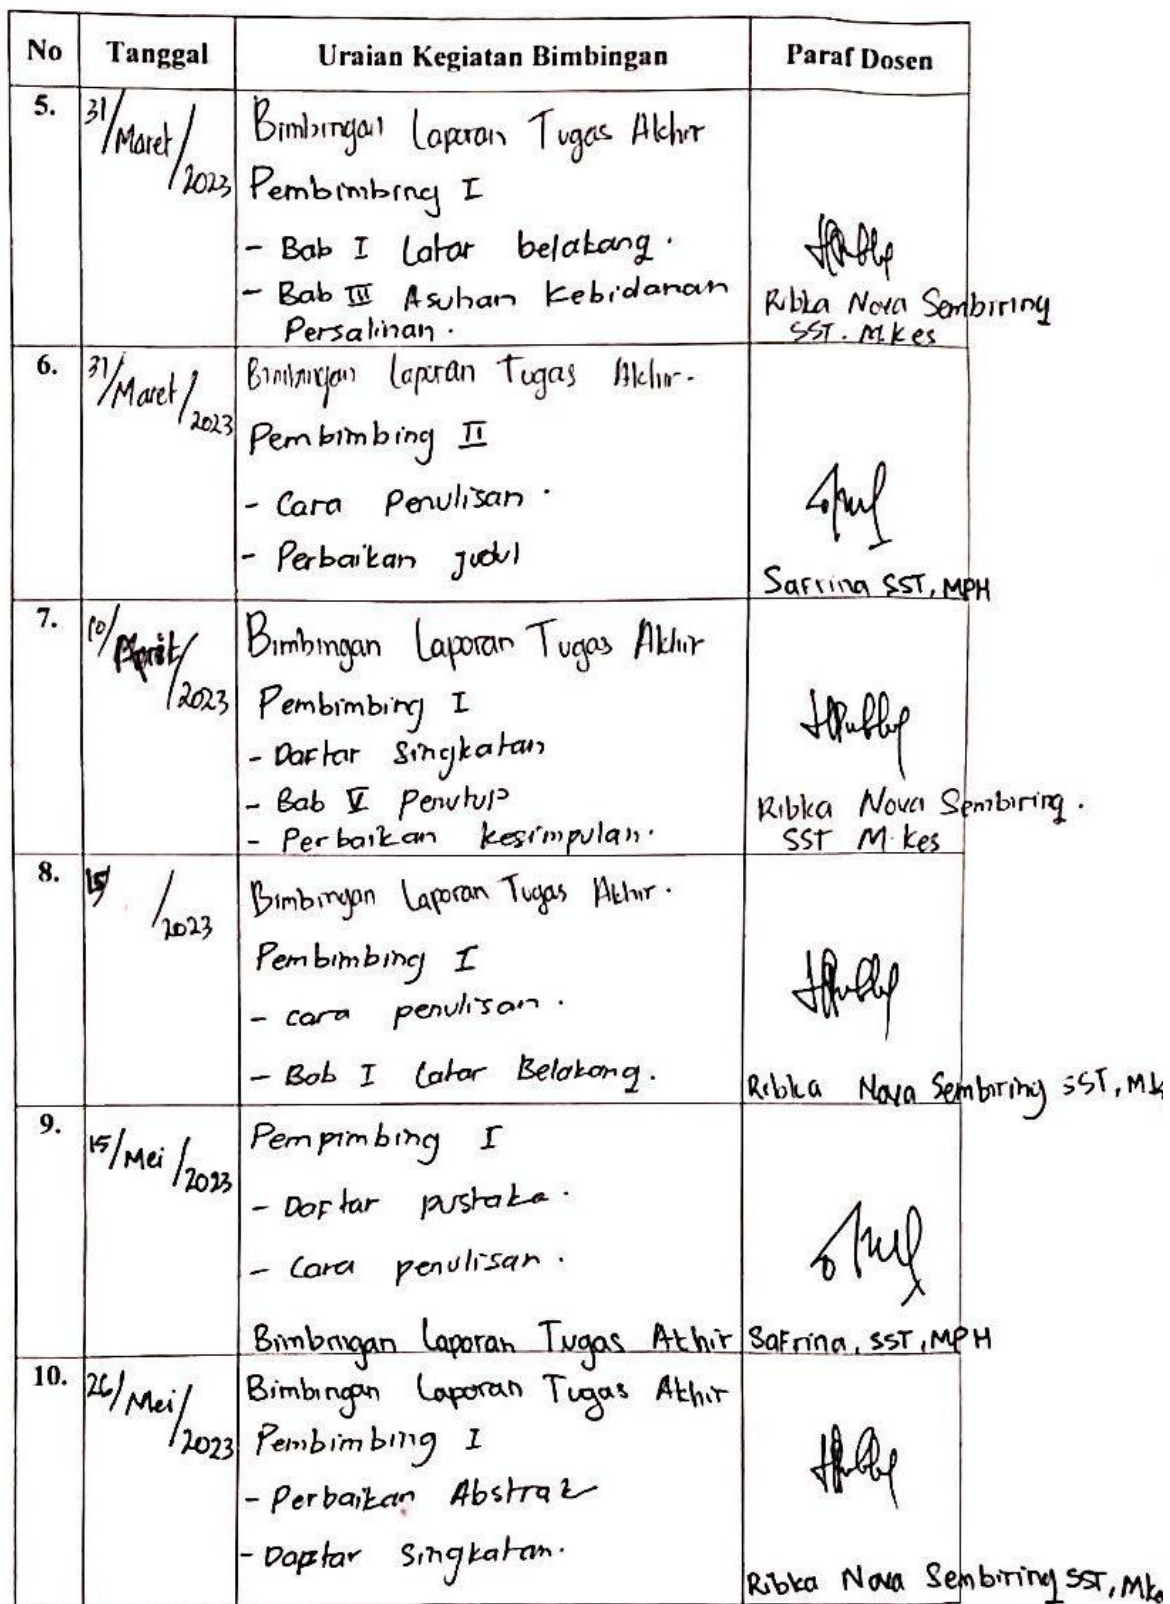 No Tanggal Uraian Kegiatan Bimbingan Paraf Dosen
5. 31/Maret/2023 Bimbingan Laporan Tugas Akhir
Pembimbing I
- Bab I Latar belakang.
- Bab III Asuhan Kebidanan
Persalinan.
Ribka Nova Sembiring
SST. M.Kes
6. 31/Maret/2023 Bimbingan Laporan Tugas Akhir.
Pembimbing II
- Cara Penulisan.
- Perbaikan judul
Safrina SST, MPH
7. 10/April/2023 Bimbingan Laporan Tugas Akhir
Pembimbing I
- Daftar Singkatan
- Bab V Penutup
- Perbaikan kesimpulan.
Ribka Nova Sembiring.
SST M.kes
8. 15/ /2023 Bimbingan Laporan Tugas Akhir.
Pembimbing I
- cara penulisan.
- Bab I Latar Belakang.
Ribka Nova Sembiring SST, Mk
9. 15/Mei/2023 Pempimbing I
- Daftar pustaka.
- Cara penulisan.
Bimbingan Laporan Tugas Akhir
Safrina, SST, MPH
10. 26/Mei/2023 Bimbingan Laporan Tugas Akhir
Pembimbing I
- Perbaikan Abstrak
- Dapftar Singkatan.
Ribka Nova Sembiring SST, Mke